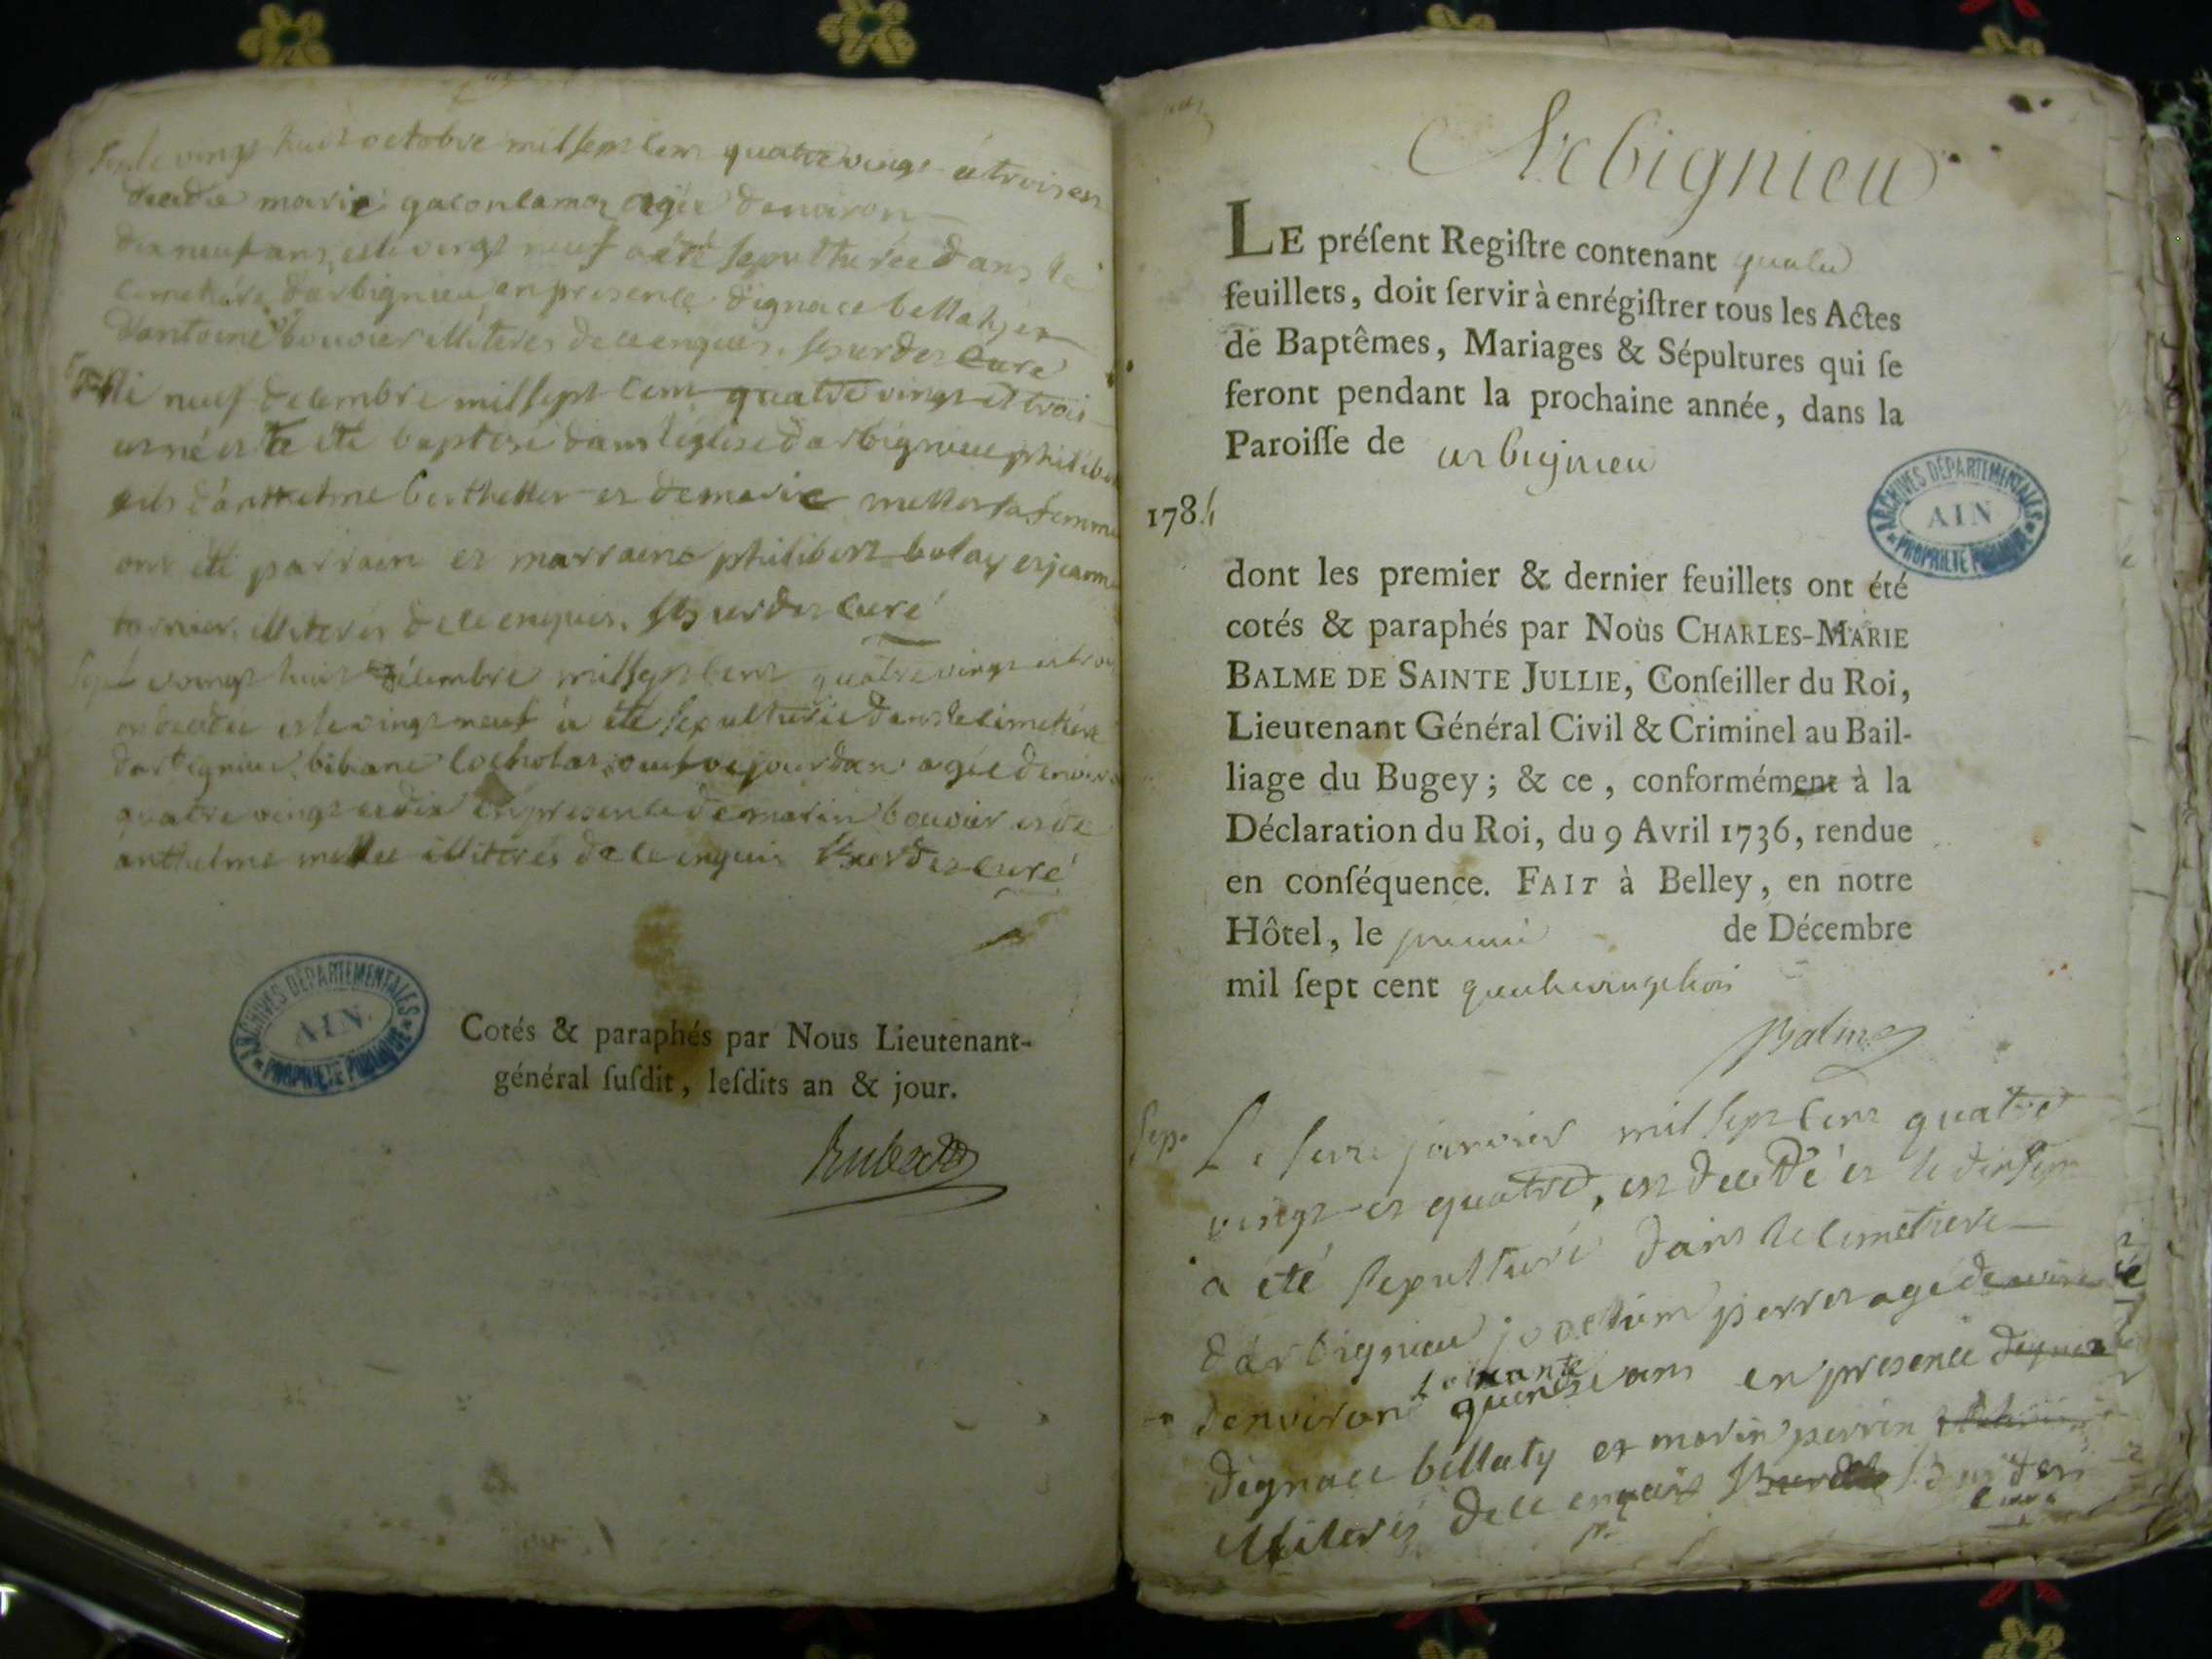 le vingt huit octobre mil sept cent quatre vingt et trois est
decedée marie gaconlamoz agée denviron
dix neuf ans, et le vingt neuf a été sepulturée dans le
cimetiére d'arbignieu en presence d'ignace bellaty et
d'antoine bouvier illiterés de ce enquis. curé
le neuf decembre mil sept cent quatre vingt et trois
est né et a été baptisé dans l'église d'arbignieu philibert
fils d'anthelme berthellet et de marie mettoz sa femme
ont été parrain et marraine philibert et jeanne
illiterés de ce enquis. curé
Sep. Le vingt huit décembre mil sept cent quatre vingt et trois
est decedée et le vingt neuf a été sepulturée dans le cimetiére
d'arbignieu bibiane cocholat veuve jourdan agée denviron
quatre vingt et dix en presence de marin bouvier et de
anthelme mettoz illiterés de ce enquis curé
ARCHIVES DÉPARTEMENTALES
AIN
PROPRIÉTÉ PUBLIQUE
Cotés & paraphés par Nous Lieutenant-
général ſuſdit, leſdits an & jour.
Arbignieu
LE préſent Regiſtre contenant quatre
feuillets, doit ſervir à enrégiſtrer tous les Actes
de Baptêmes, Mariages & Sépultures qui ſe
feront pendant la prochaine année, dans la
Paroiſſe de arbignieu
1784
ARCHIVES DÉPARTEMENTALES
AIN
PROPRIÉTÉ PUBLIQUE
dont les premier & dernier feuillets ont été
cotés & paraphés par Nous CHARLES-MARIE
BALME DE SAINTE JULLIE, Conſeiller du Roi,
Lieutenant Général Civil & Criminel au Bail-
liage du Bugey; & ce, conformément à la
Déclaration du Roi, du 9 Avril 1736, rendue
en conſéquence. FAIT à Belley, en notre
Hôtel, le premier de Décembre
mil ſept cent quatrevingt trois
Balme
Sep. Le seize janvier mil sept cent quatre
vingt et quatre, est decedé et le dix sept
a été sepulturé dans le cimetiere
d'arbignieu joachim perret agé denviron
denviron soixante quinze ans en presence dignace
dignace bellaty et marin perrin
illiterés de ce enquis curé